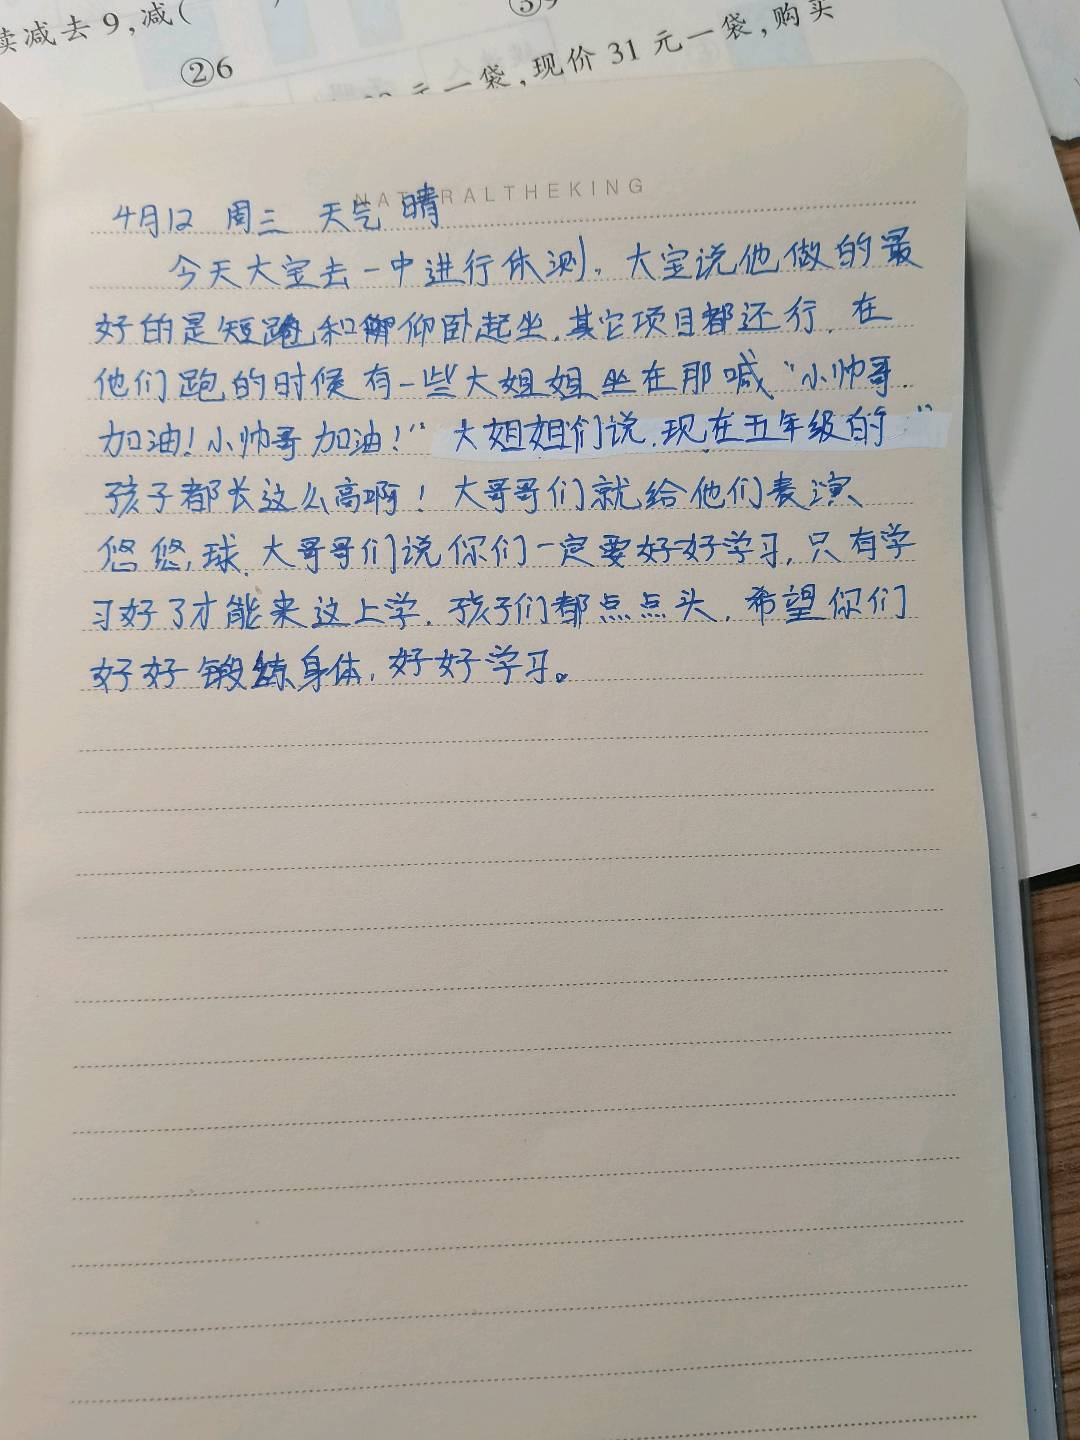 读减去9,减(
②6
元一袋,现价31元一袋,购买
NATURALTHEKING
4月12 周三 天气 晴
今天大宝去一中进行体测。大宝说他做的最
好的是短跑和仰卧起坐,其它项目都还行,在
他们跑的时候有一些大姐姐坐在那喊“小帅哥.
加油!小帅哥加油!“ 大姐姐们说,现在五年级的”
孩子都长这么高啊!大哥哥们就给他们表演
悠悠球,大哥哥们说你们一定要好好学习,只有学
习好了才能来这上学,孩子们都点点头,希望你们
好好锻练身体,好好学习。